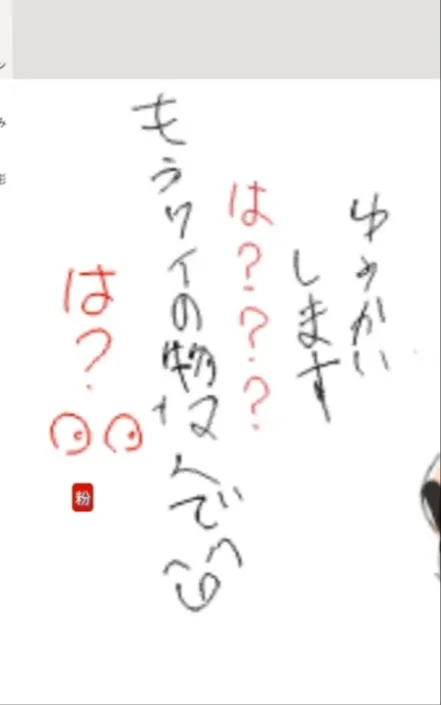 ゆうかい
します
は？？？
もうワイの物なんで
は？
粉